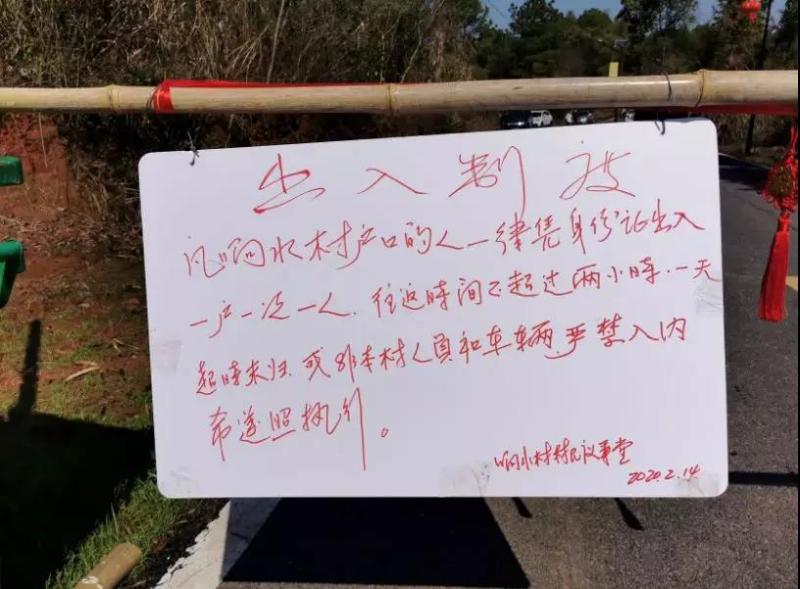 出入制度
凡响水村户口的人一律凭身份证出入
一户一次一人.往返时间不超过两小时.一天
超时未归.或非本村人员和车辆.严禁入内
希遵照执行。
响水村村民议事堂
2020.2.14